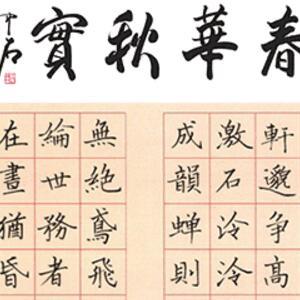 春華秋實
中石
軒邈争高
激石泠泠
成韻蝉則
無絕鳶飛
綸世務者
在晝猶昏